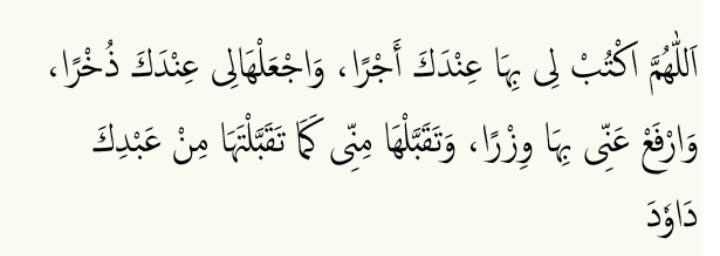 اَللّٰهُمَّ اكْتُبْ لِى بِهَا عِنْدَكَ أَجْرًا، وَاجْعَلْهَالِى عِنْدَكَ ذُخْرًا،
وَارْفَعْ عَنِّى بِهَا وِزْرًا، وَتَقَبَّلْهَا مِنِّى كَمَا تَقَبَّلْتَهَا مِنْ عَبْدِكَ
دَاوٗدَ